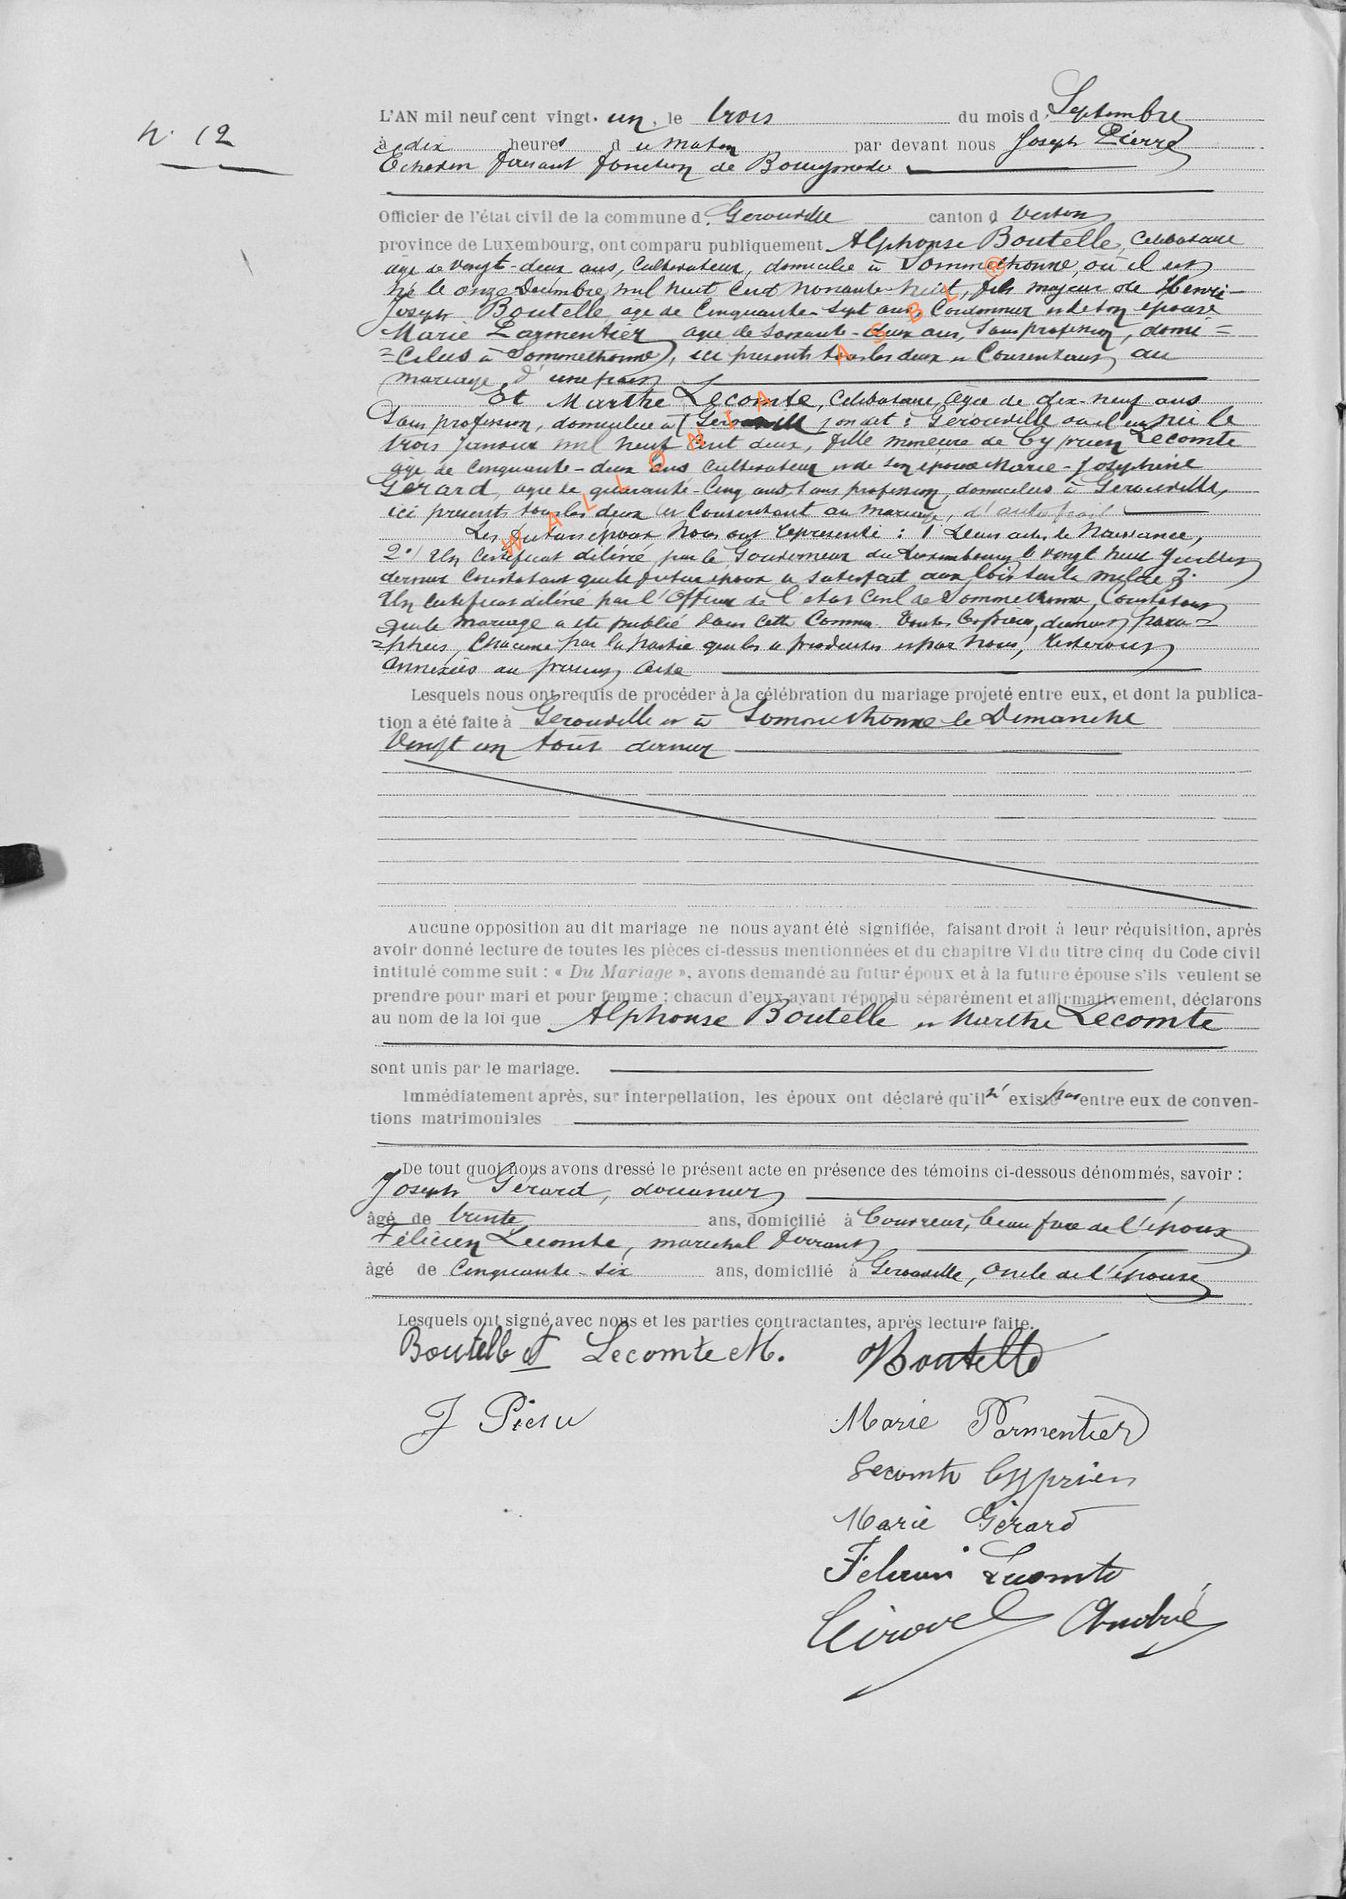 N° 12
L'AN mil neuf cent vingt. un, le trois du mois d Septembre
à dix heures du matin par devant nous Joseph Pierre
Echevin faisant fonction de Bourgmestre
Officier de l'état civil de la commune d Gerouville canton d Virton
province de Luxembourg, ont comparu publiquement Alphonse Boutelle, Celibataire
age de vingt-deux ans, Cultivateur, domicilié à Sommethonne, où il est
né le onze Decembre mil huit cent nonante huit, fils majeur de Henri-
Joseph Boutelle, âgé de Cinquante-sept ans, Cordonnier et de son epouse
Marie Parmentier agée de Soixante-deux ans, Sans profession, domi=
=Ciliés à Sommethonne, ici presents tous les deux et Consentants au
mariage, d'une part
Et Marthe Lecomte, Celibataire, âgée de dix-neuf ans
Sans profession, domiciliée à on dit : Gerouville où elle est née le
trois Janvier mil neuf cent deux, fille mineure de Cyprien Lecomte
age de Cinquante-deux ans Cultivateur et de son epouse Marie-Josephine
Gérard, agée de quarante-Cinq ans, Sans profession, domiciliés à Gerouville,
ici presents tous les deux et Consentant au mariage, d'autre part
Les futurs epoux Nous ont representé : 1° Leurs actes de Naissance,
2°/ Un Certificat délivré par le Gouverneur du Luxembourg le vingt neuf Juillet
dernier Constatant que le futur epoux a satisfait aux lois sur la milice 3°
Un Certificat délivré par l'Officier de l'etat Civil de Sommethonne, Constatant
que le mariage a été publié dans cette Commune. Toutes Ces pièces, dument para=
=phées, Chacune par la partie qui les a produites et par Nous, resteront
annexées au présent acte
Lesquels nous ont requis de procéder à la célébration du mariage projeté entre eux, et dont la publica-
tion a été faite à Gerouville et à Sommethonne le Dimanche
Vingt un Août dernier
Aucune opposition au dit mariage ne nous ayant été signifiée, faisant droit à leur réquisition, après
avoir donné lecture de toutes les pièces ci-dessus mentionnées et du chapitre VI du titre cinq du Code civil
intitulé comme suit : « Du Mariage », avons demandé au futur époux et à la future épouse s'ils veulent se
prendre pour mari et pour femme ; chacun d'eux ayant répondu séparément et affirmativement, déclarons
au nom de la loi que Alphonse Boutelle et Marthe Lecomte
sont unis par le mariage.
Immédiatement après, sur interpellation, les époux ont déclaré qu'il n'existe pas entre eux de conven-
tions matrimoniales
De tout quoi nous avons dressé le présent acte en présence des témoins ci-dessous dénommés, savoir :
Joseph Gérard, douanier,
âgé de trente ans, domicilié à Courreux, beau frère de l'époux
Félicien Lecomte, marechal ferrant
âgé de Cinquante-six ans, domicilié à Gerouville, oncle de l'épouse
Lesquels ont signé avec nous et les parties contractantes, après lecture faite.
Boutelle A Lecomte M. Boutelle
J Pierre Marie Parmentier
Lecomte Cyprien
Marie Gérard
Félicien Lecomte
WALLONIA ASBL ®